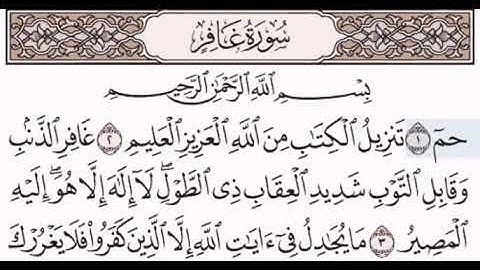 سُورَةُ غَافِرٍ
بِسْمِ ٱللَّهِ ٱلرَّحْمَٰنِ ٱلرَّحِيمِ
حمٓ ١ تَنزِيلُ ٱلْكِتَٰبِ مِنَ ٱللَّهِ ٱلْعَزِيزِ ٱلْعَلِيمِ ٢ غَافِرِ ٱلذَّنۢبِ
وَقَابِلِ ٱلتَّوْبِ شَدِيدِ ٱلْعِقَابِ ذِى ٱلطَّوْلِ ۖ لَآ إِلَٰهَ إِلَّا هُوَ ۖ إِلَيْهِ
ٱلْمَصِيرُ ٣ مَا يُجَٰدِلُ فِىٓ ءَايَٰتِ ٱللَّهِ إِلَّا ٱلَّذِينَ كَفَرُوا۟ فَلَا يَغْرُرْكَ